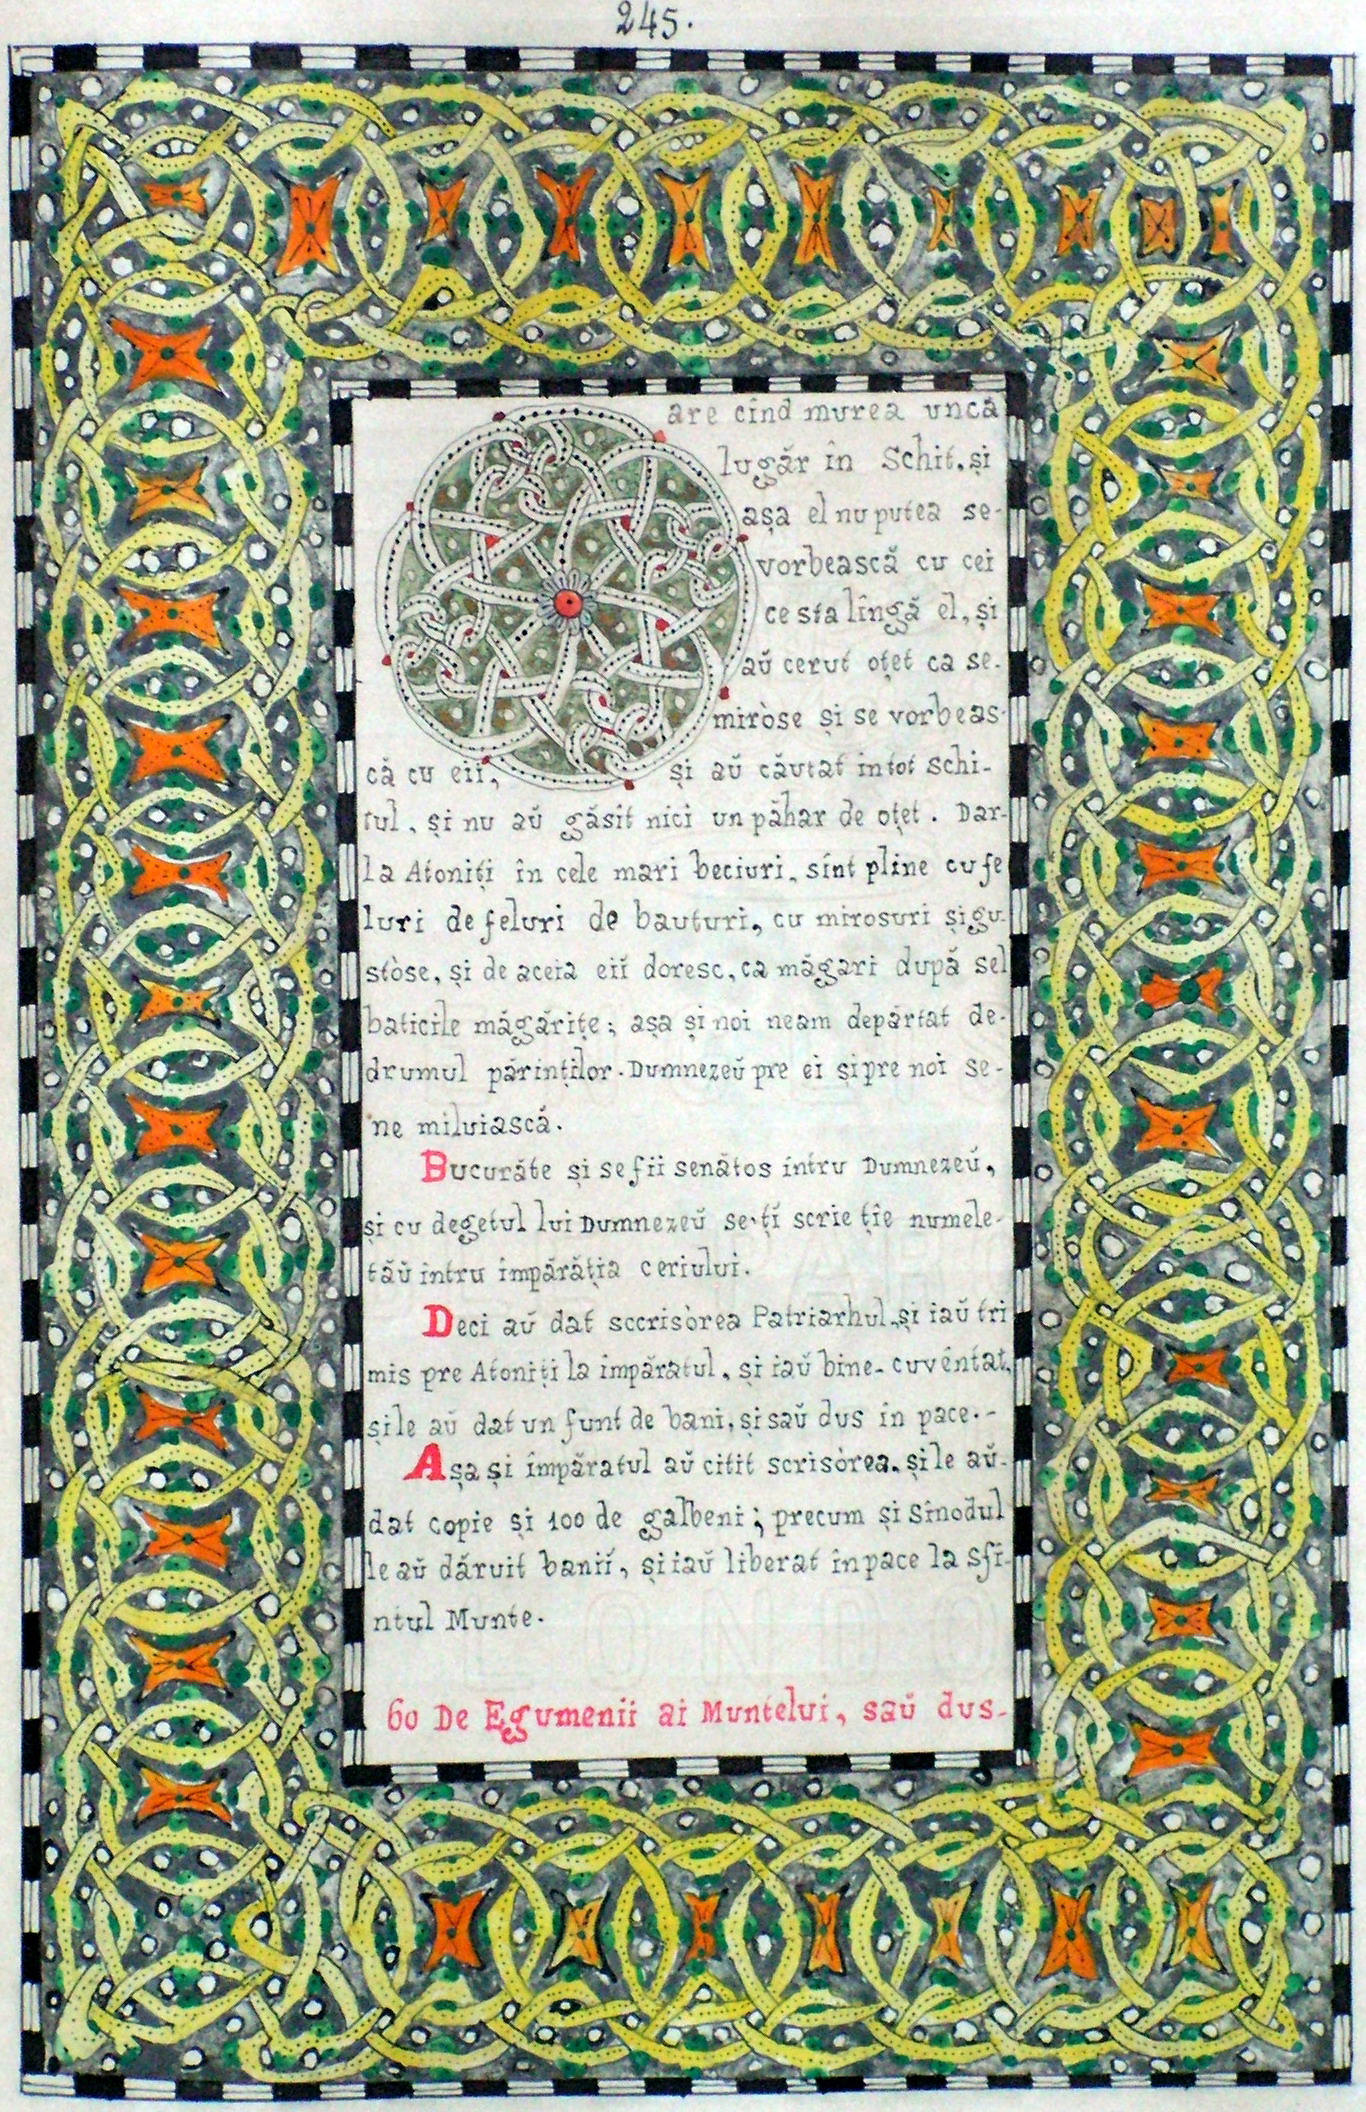 245.
are cînd murea unca
lugăr în Schit, și
așa el nu putea se-
vorbească cu cei
ce sta lîngă el, și
aŭ cerut oțet ca se-
miròse și se vorbeas-
că cu eiĭ, și aŭ căutat in tot Schi-
tul, și nu aŭ găsit nici un păhar de oțet. Dar-
la Atoniți în cele mari beciuri, sînt pline cu fe
luri de feluri de bauturi, cu mirosuri și gu-
stòse, și de aceia eiĭ doresc, ca măgari după sel
baticile măgărițe; așa și noi neam depărtat de-
drumul părinților. Dumnezeŭ pre ei și pre noi se-
ne miluiască.
Bucurăte și se fii senătos întru Dumnezeŭ,
și cu degetul lui Dumnezeŭ se-țĭ scrie țîe numele-
tăŭ întru împărăția ceriului.
Deci aŭ dat sccrisòrea Patriarhul, și iaŭ tri
mis pre Atoniți la împăratul, și iaŭ bine-cuvêntat,
și le aŭ dat un funt de bani, și saŭ dus în pace.-
Așa și împăratul aŭ citit scrisòrea, și le aŭ-
dat copie și 100 de galbeni; precum și Sînodul
le aŭ dăruit baniĭ, și iaŭ liberat în pace la Sfî-
ntul Munte.
60 De Egumenii ai Muntelui, saŭ dus-
ENGLIS
PAR
LONDO